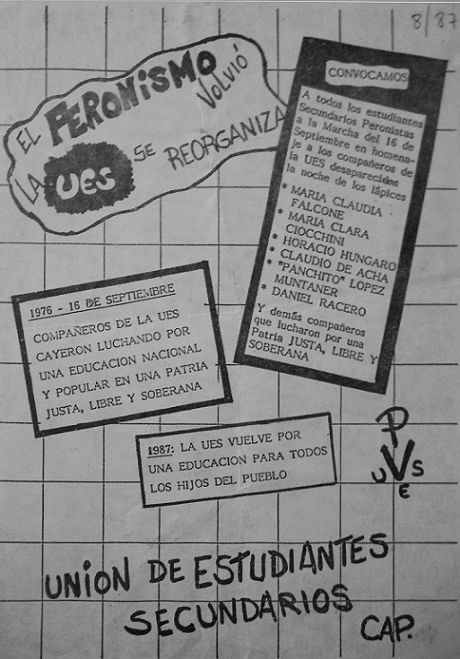 8/87
EL PERONISMO
VOLVIÓ
LA UES SE REORGANIZA
CONVOCAMOS
A todos los estudiantes
Secundarios Peronistas
a la Marcha del 16 de
Septiembre en homena-
je a los compañeros de
la UES desaparecidos
la noche de los lápices
* MARIA CLAUDIA
FALCONE
* MARIA CLARA
CIOCCHINI
* HORACIO HUNGARO
* CLAUDIO DE ACHA
* "PANCHITO" LOPEZ
MUNTANER
* DANIEL RACERO
Y demás compañeros
que lucharon por una
Patria JUSTA, LIBRE Y
SOBERANA
1976 - 16 DE SEPTIEMBRE
COMPAÑEROS DE LA UES
CAYERON LUCHANDO POR
UNA EDUCACION NACIONAL
Y POPULAR EN UNA PATRIA
JUSTA, LIBRE Y SOBERANA
1987: LA UES VUELVE POR
UNA EDUCACION PARA TODOS
LOS HIJOS DEL PUEBLO
P
V
U S
E
UNION DE ESTUDIANTES
SECUNDARIOS
CAP.